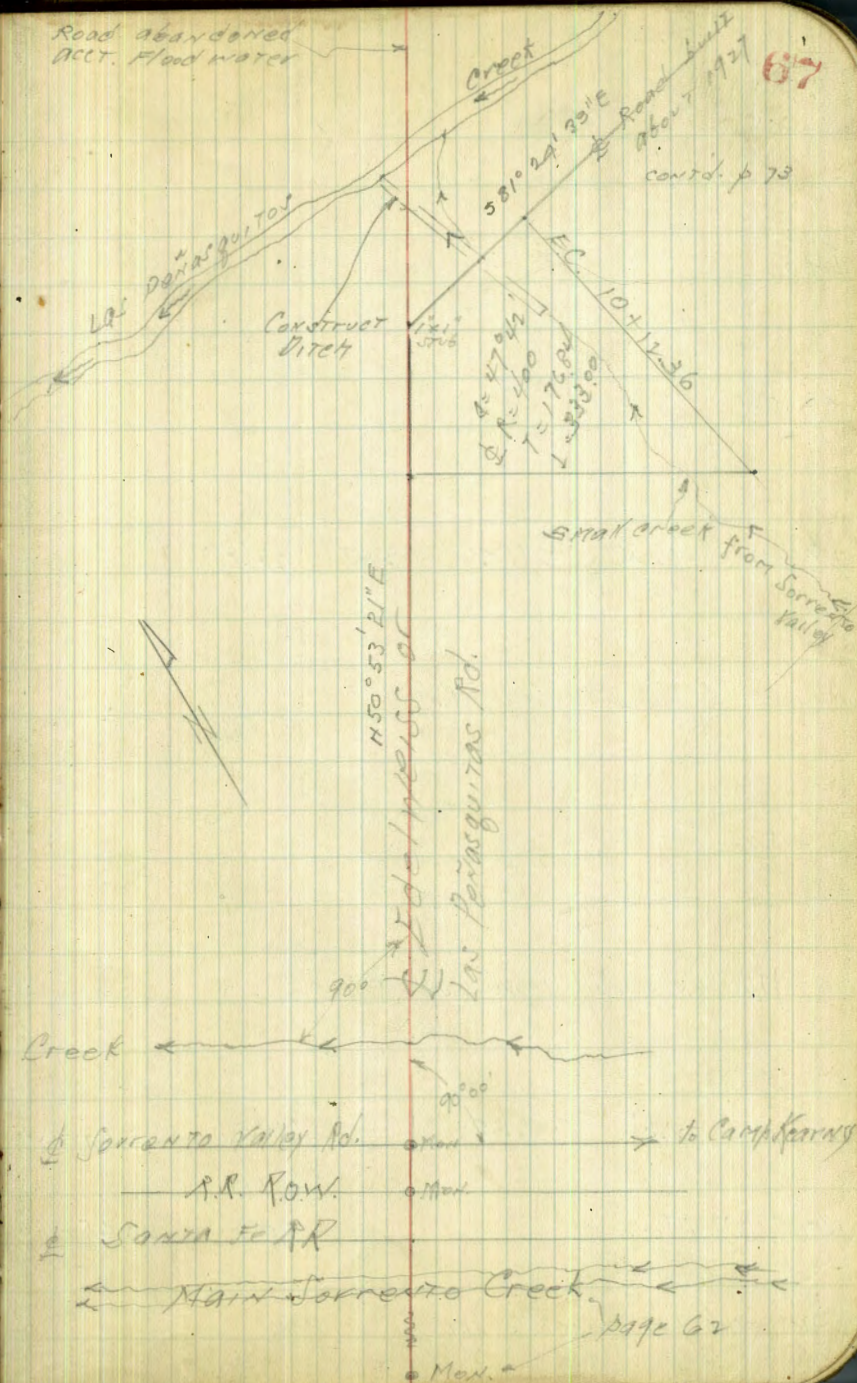 Road abandoned
acct. Flood water
67
Creek
℄ Road built
about 1927
contd. p 73
S 81° 24' 39" E
Las Peñasquitos
Construct
Ditch
1"x1"
stub
E.C. 10+12.36
Δ = 47° 42'
℄ R = 400
T = 176.84
L = 333.00
Small creek from Sorrento
Valley
N 50° 53' 21" E
℄ Edelweiss or
Las Peñasquitas Rd.
90°
Creek
90° 00'
℄ Sorrento Valley Rd.
Mon
to Camp Kearny
R.R. R.O.W.
Mon.
℄ Santa Fe RR
Main Sorrento Creek.
page 62
Mon.